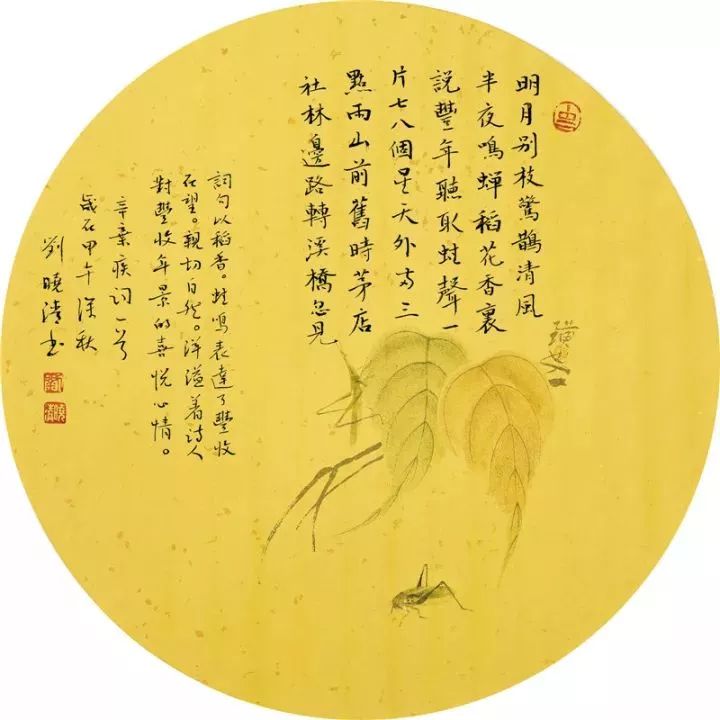 明月别枝驚鵲清風
半夜鳴蟬稻花香裏
説豐年聽取蛙聲一
片七八個星天外兩三
點雨山前舊時茅店
社林邊路轉溪橋忽見
詞句以稻香。蛙鳴表達了豐收
在望。親切自然。洋溢着詩人
對豐收年景的喜悦心情。
辛棄疾詞一首
歲在甲午深秋
劉曉清书